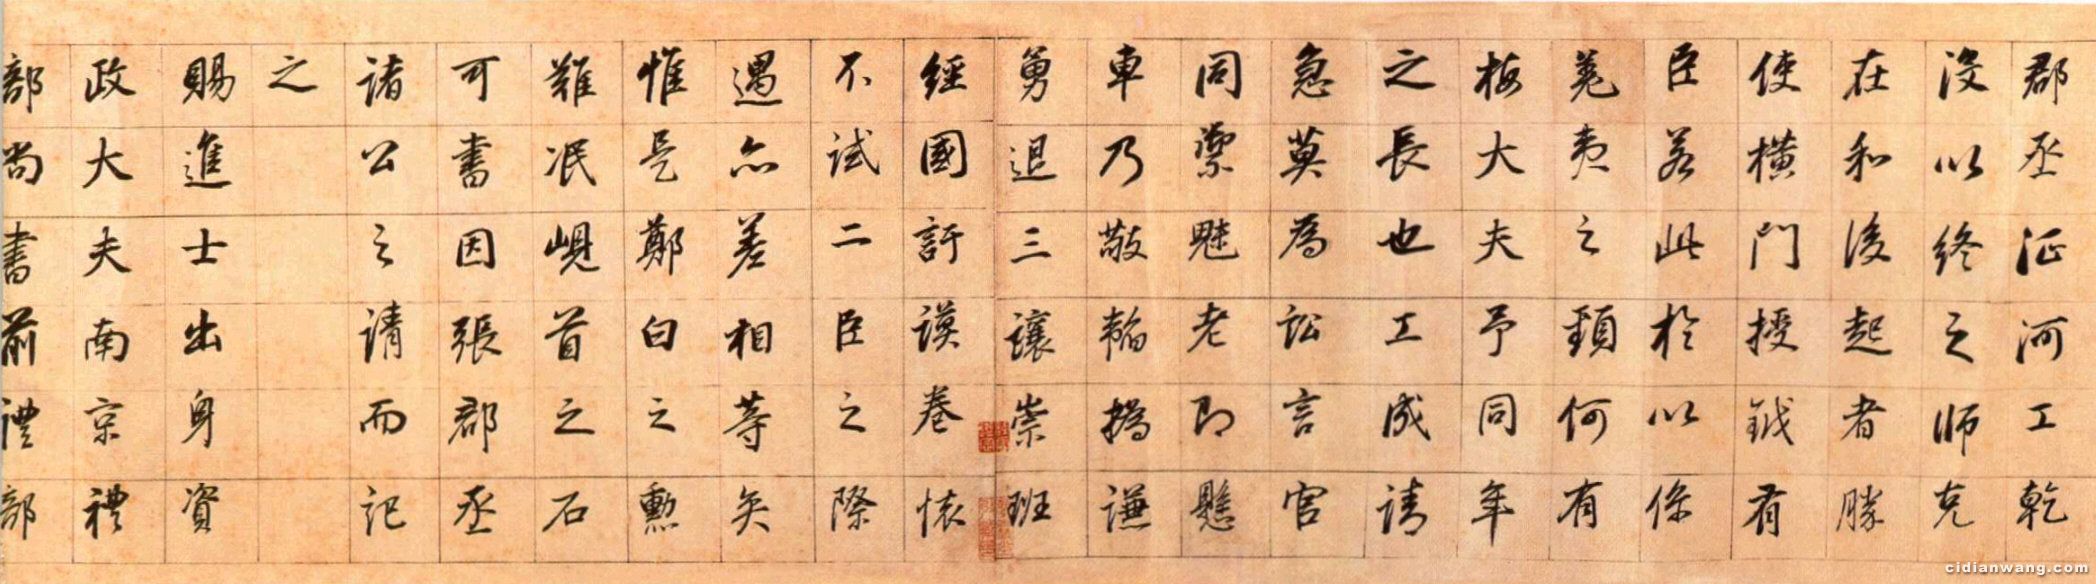 郡丞征河工乾
沒以終之師克
在和後起者勝
使橫門授鉞有
臣若此於以係
羌夷之頸何有
梅大夫予同年
之長也工成請
急莫為訟言官
同禦魅老即懸
車乃敬韜撝謙
勇退三讓崇班
經國訏謨卷懷
不試二臣之際
遇亦差相等矣
惟是鄭白之勳
難泯峴首之石
可書因張郡丞
諸公之請而記
之
賜進士出身資
政大夫南京禮
部尚書前禮部
cidianwang.com